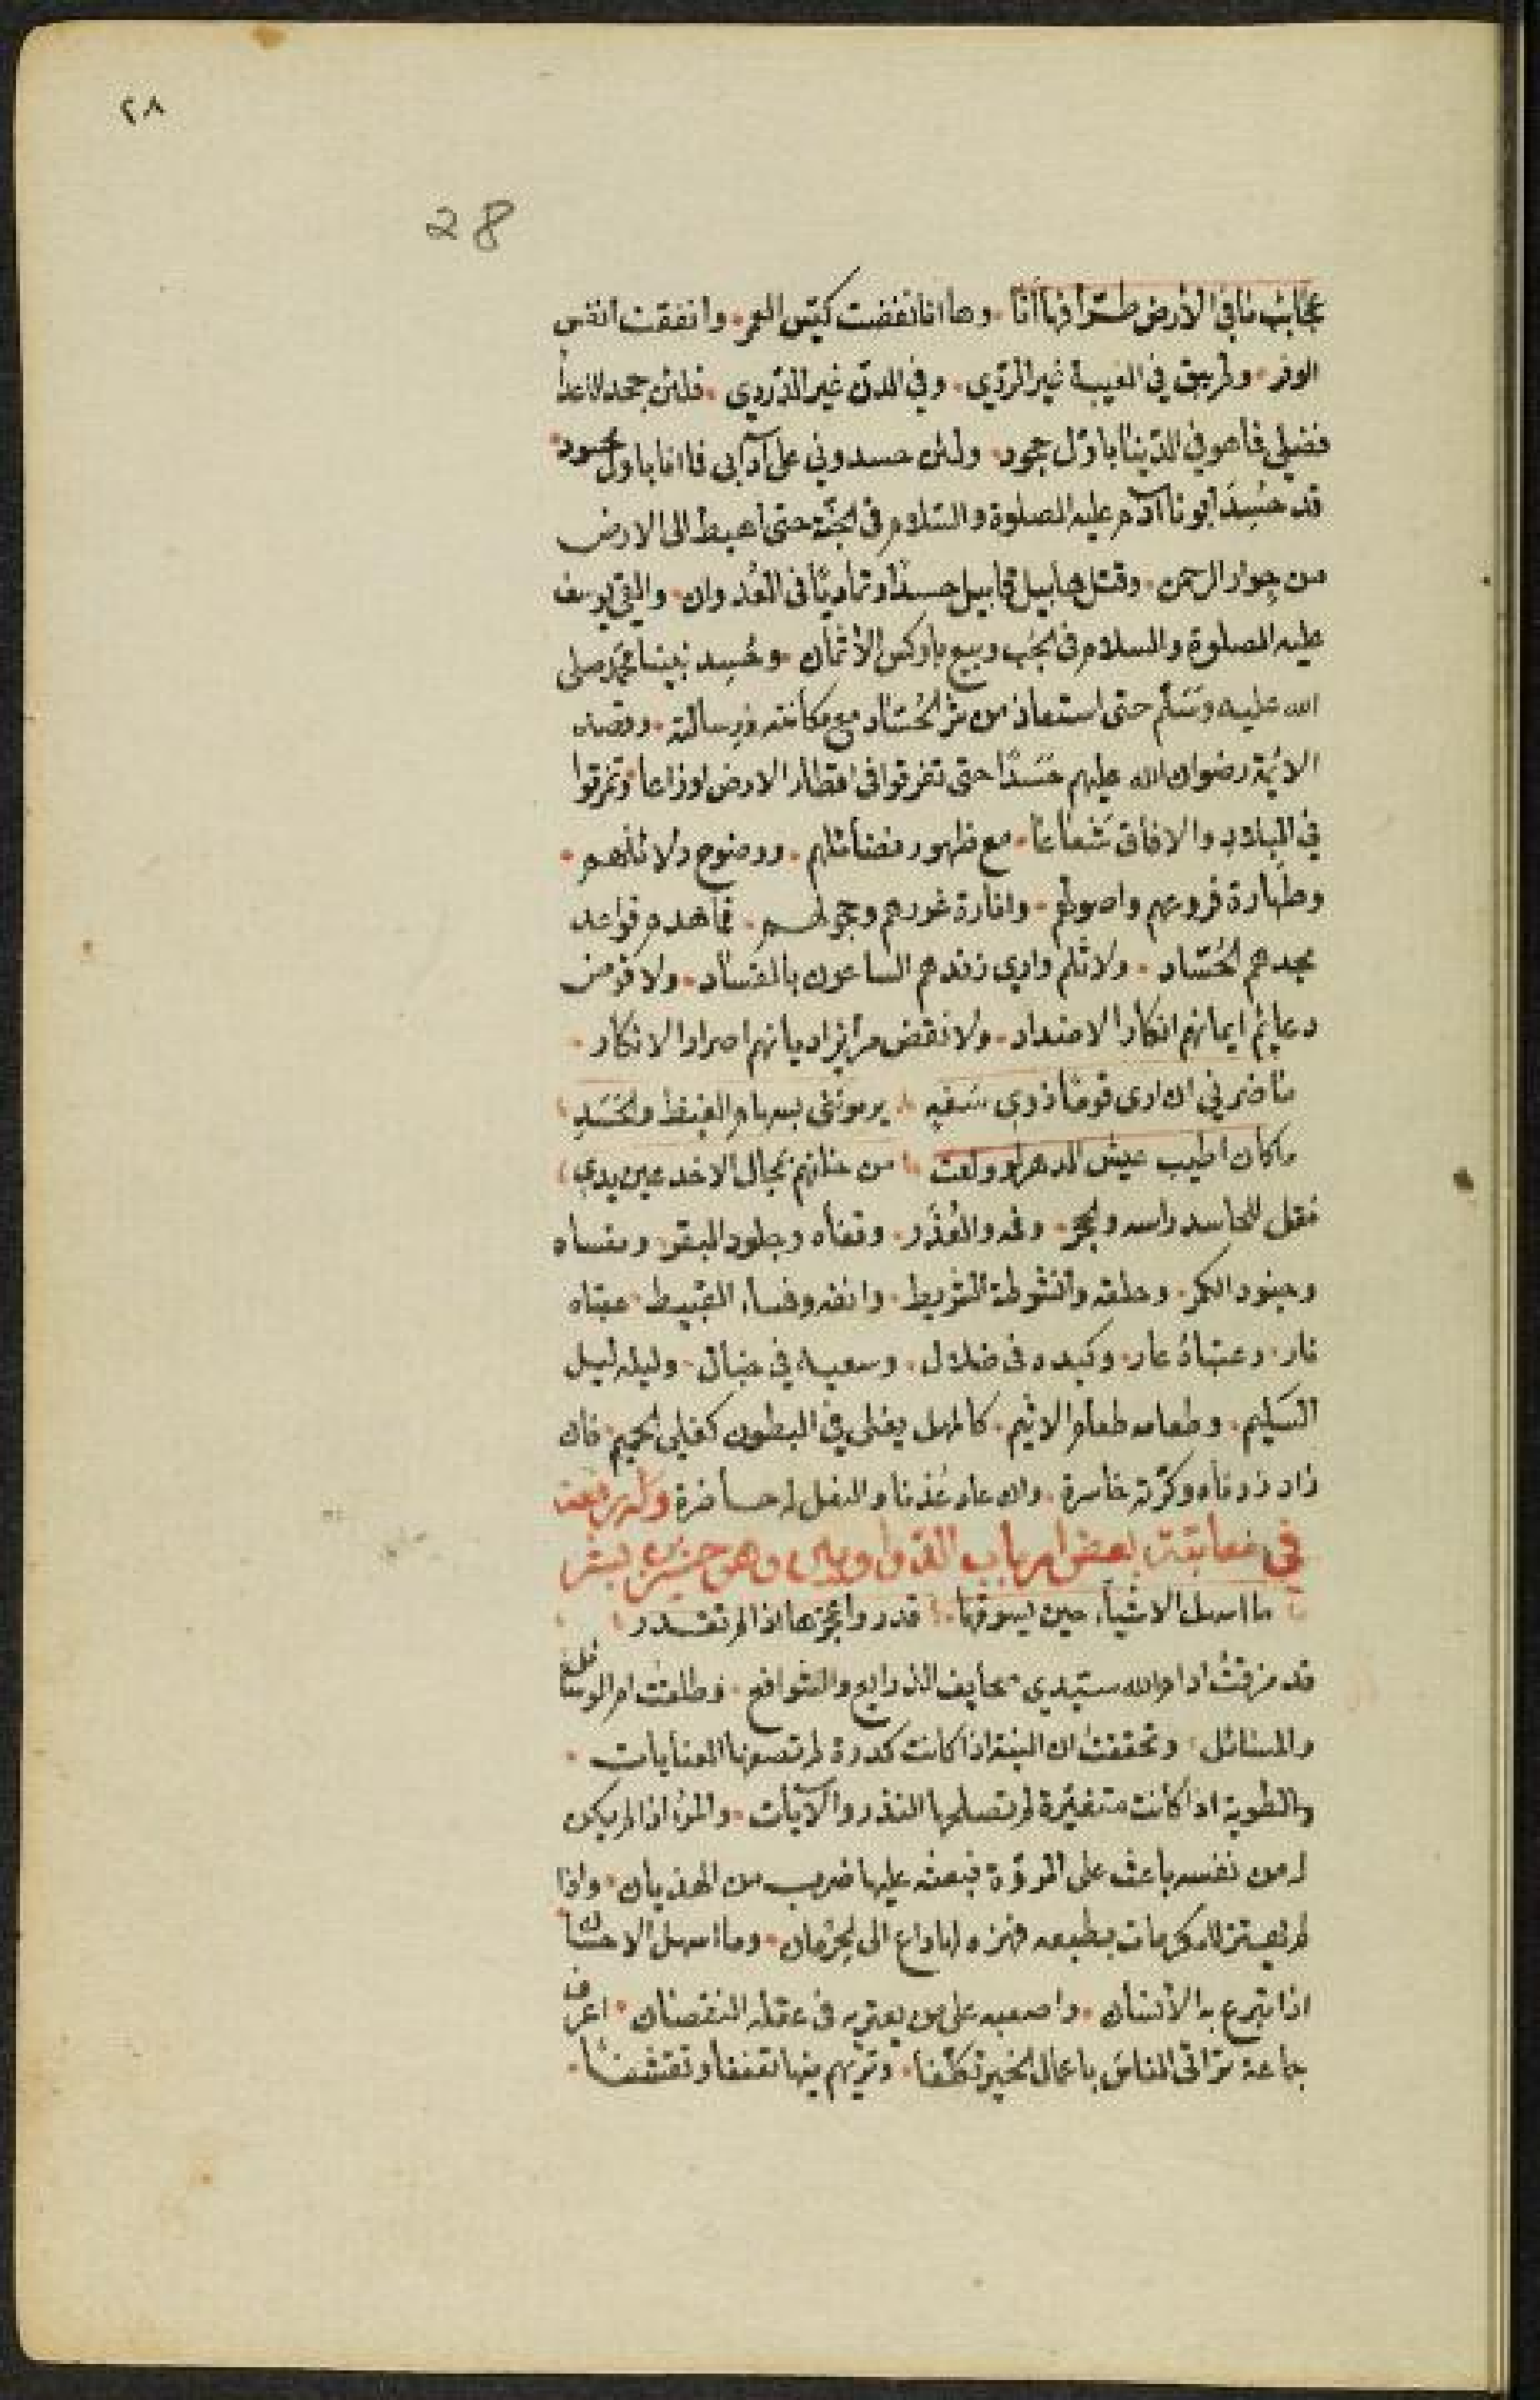 ٢٨
28
عجائب ما في الأرض طرّا فها أنا . وها أنا نفضت كيس العمر . وانفقت انفس
الوفر . وطريق في الغيبة غير الردي . وفي الدن غير الدردي . فلئن جحد الاعدا
فضلي فما هو في الدينا باوّل جحود . ولئن حسدوني على آدابي فما انا باول محسود .
قد حُسِدَ ابونا آدم عليه الصلوة والسلام في الجنّة حتى أهبط الى الارض
من جوار الرحمن . وقتل هابيل قابيل حسدًا وتماديًا في العُدوان . والقي يوسف
عليه الصلوة والسلام في الجُب وبيع باوكس الأثمان . وحُسِد نبينا محمد صلى
الله عليه وسَلم حتى استعاذ من شر الحُسّاد مع مكانته ورسالته .
الائمة رضوان الله عليهم حَسَدًا حتى تفرقوا في اقطار الارض اوزاعا وتمزقوا
في البلاد والافاق شعاعا . مع ظهور فضائلهم . ووضوح دلائلهم .
وطهارة فروعهم واصولهم . وانارة غررهم وحجولهم . فما هدم قواعد
مجدهم الحُسّاد . ولا ثلم واري زندهم الساعون بالفساد . ولا قوض
دعايم ايمانهم انكار الاضداد . ولا نقض مراير اديانهم اصرار الانكار .
ما ضرني ان ارى قومًا ذوي سَفه . يرمونني بسهام الغيظ والحَسَدِ
ما كان اطيب عيش الدهر لو ولعت . من خنانهم بمجال الاخدعين يدي
فقل للحاسد راسه والحجر . وفمه والعُذَر . وقفاه وجلود البقر .
. وحلقه وانشوطة الشريط . وانفه وفساء القبيط . عيناه
نار . وعتباه عار . وكيده في ضلال . وسعيه في خبال . وليله ليل
السليم . وطعامه طعام الاثيم . كالمهل يغلى في البطون كغلي الحميم . فان
زاد زدناه وكرّته خاسرة . وان عاد عُدنا والنعل له حاضرة وله رقعة
في معاتبة بعض ارباب الدواوين وهو حسين بن بشر
ما اسهل الاشياء حين يسوقها . قدر واعجزها اذا لم تقدر
قد مزقتُ ادام الله سيّدي صحايف الذرايع والشوافع . وطلقت ام الوسائل
والمسائل . وتحققت ان النية اذا كانت كدرة لم تصفها العنايات .
والطوية اذا كانت متغيّرة لم تصلحها النذر والآيات . والمرُ اذا لم يكن
له من نفسه باعث على المروّة فبعثه عليها ضرب من الهذيان . واذا
لم يهتز للمكرمات بطبعه فهزه لها داع الى الحِرمان . وما اسهل الاحسان
اذا تبرع به الأنسان . واصعبه على من يعتريه في عقله النقصان . اعرف
جماعة ترائى الناس باعمال الخير تكلّفا . وتريهم فيها تعففا وتقشفا .